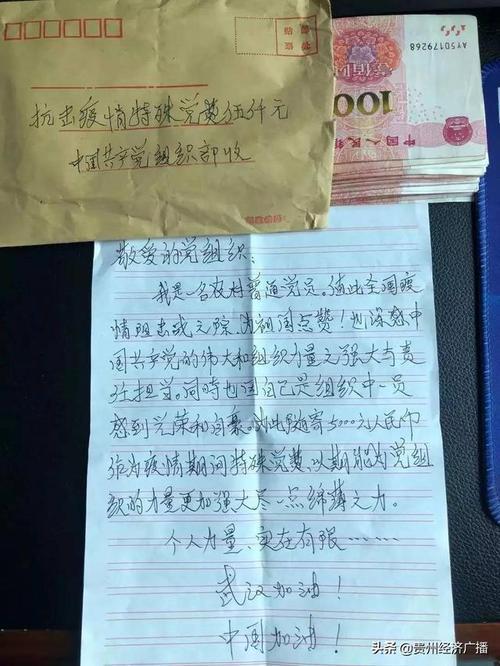 贴邮
票处
抗击疫情特殊党费伍仟元
中国共产党组织部收
AY50179268
100
中国人民银行
敬爱的党组织:
我是一名农村普通党员。值此全国疫
情阻击战之际,为祖国点赞!也深感中
国共产党的伟大和组织力量之强大与责
任担当。同时也因自己是组织中一员
感到光荣和自豪。对此随寄5000元人民币
作为疫情期间特殊党费,以期能为党组
织的力量更加强大尽一点绵薄之力。
个人力量,实在有限……
武汉加油!
中国加油!
头条 @贵州经济广播